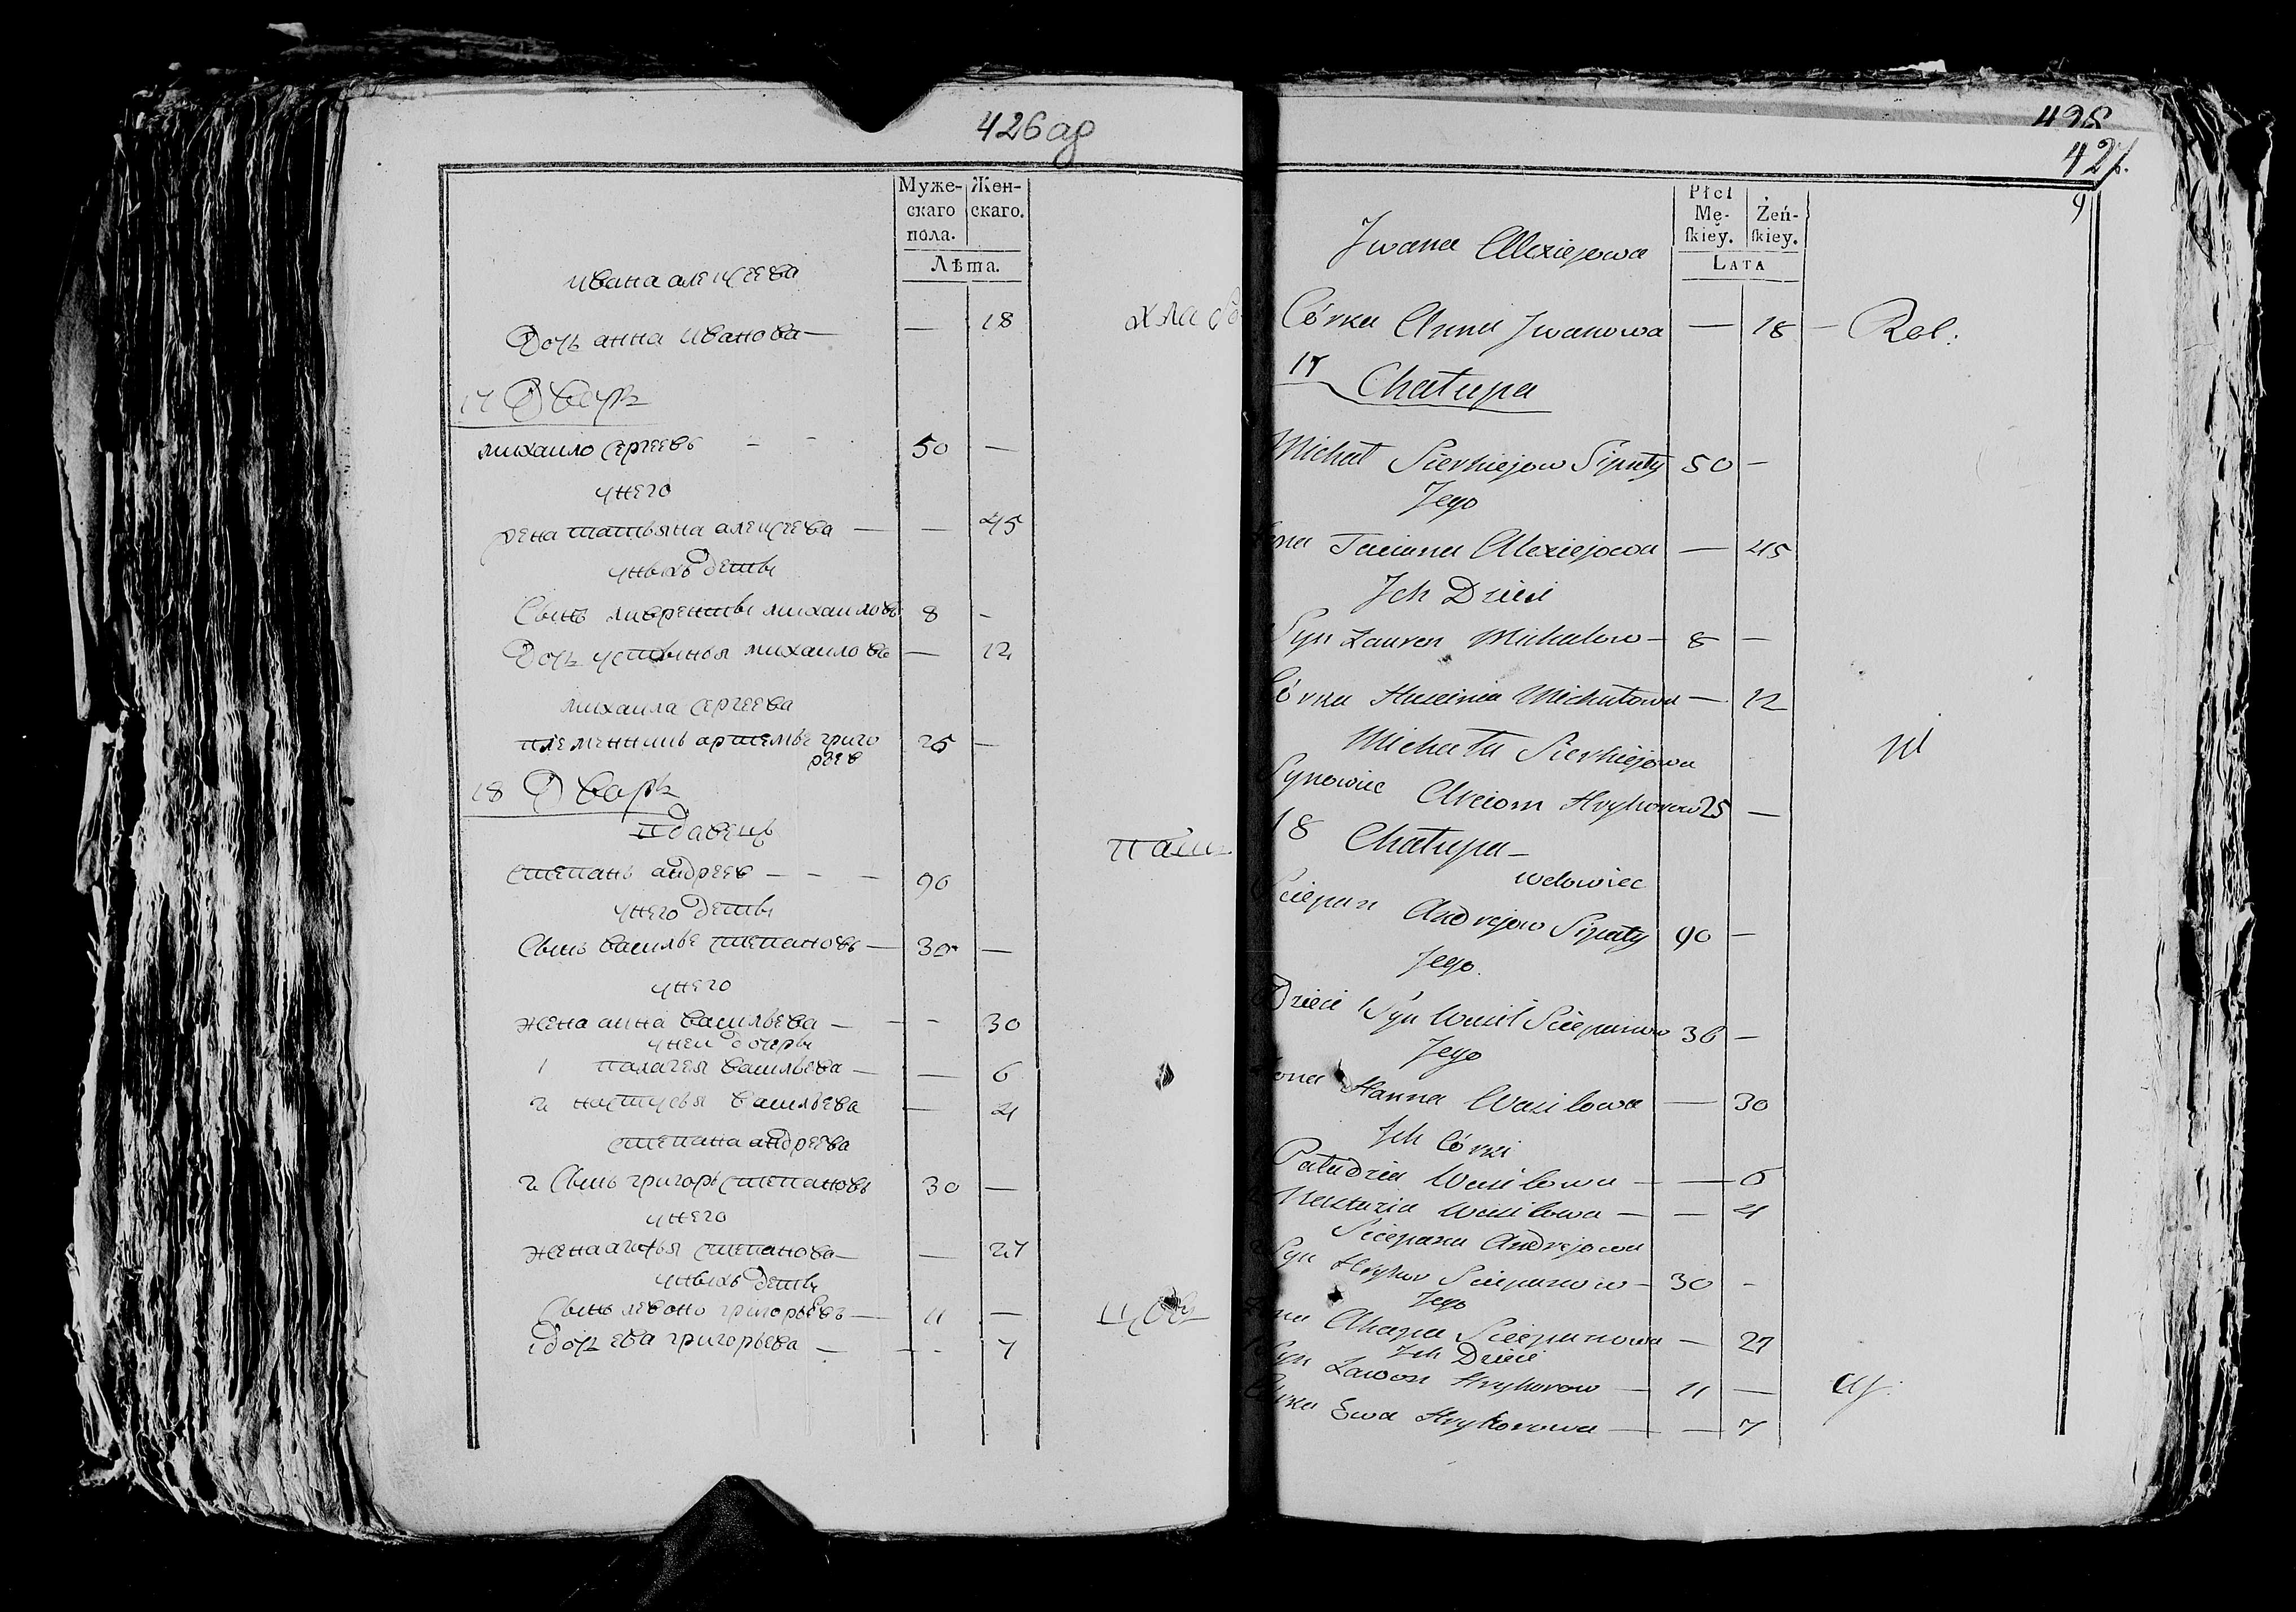 426 об
Муже-
скаго
пола.
Жен-
скаго.
Лѣта.
ивана алецеева
Дочь анна иванова — — 18
17 Дворъ
михаило сергеевъ - - 50 —
унего
жена татьяна алецеева — — 45
унихъ дети
Сынъ лаврентей михаиловъ 8 -
Дочь устинья михаилова — 12
михаила сергеева
племенникъ артемъ григо
рьев 25 —
18 Дворъ
вдовецъ
степанъ андреев - - - 90
унего дети
Сынъ василье степановъ — 30 —
унего
жена анна васильева — - - 30
уней дочери
1 палагея васильева — — 6
2 настусья васильева — 4
степана андреева
2 Сынъ григоръ степановъ 30 —
унего
жена агафья степанова — — 27
унихъ дети
Сынъ левонъ григорьевъ — 11 —
дочь ева григорьева — - - 7
426
427.
9
Płci
Mę-
ſkiey.
Żeń-
ſkiey.
Lata
Jwana Alexiejowa
Córka Anna Jwanowa — 18 — Rol.
17 Chałupa
Michał Sierhiejow Siputy 50 —
Jego
Taciana Alexiejowa — 45
Jch Dzieci
Syn Ławren Michałow — 8 —
Córka Huscinia Michałowa — 12
Michała Sierhiejowa
Synowiec Arciom Hryhorow 25 —
18 Chałupa —
wdowiec
Sciepan Andrejow Siputy 90 —
Jego.
Dzieci Syn Wasil Sciepanow 30 —
Jego
Hanna Wasilowa — 30
Jch Córki
Paładzia Wasilowa — — 6
Nastazia Wasilowa — — 4
Sciepana Andrejowa
Syn Hryhor Sciepanow — 30 -
Jego
Ahapa Sciepanowa — 27
Jch Dzieci
Syn Ławon Hryhorow — 11 —
Córka Ewa Hryhorowa — — 7